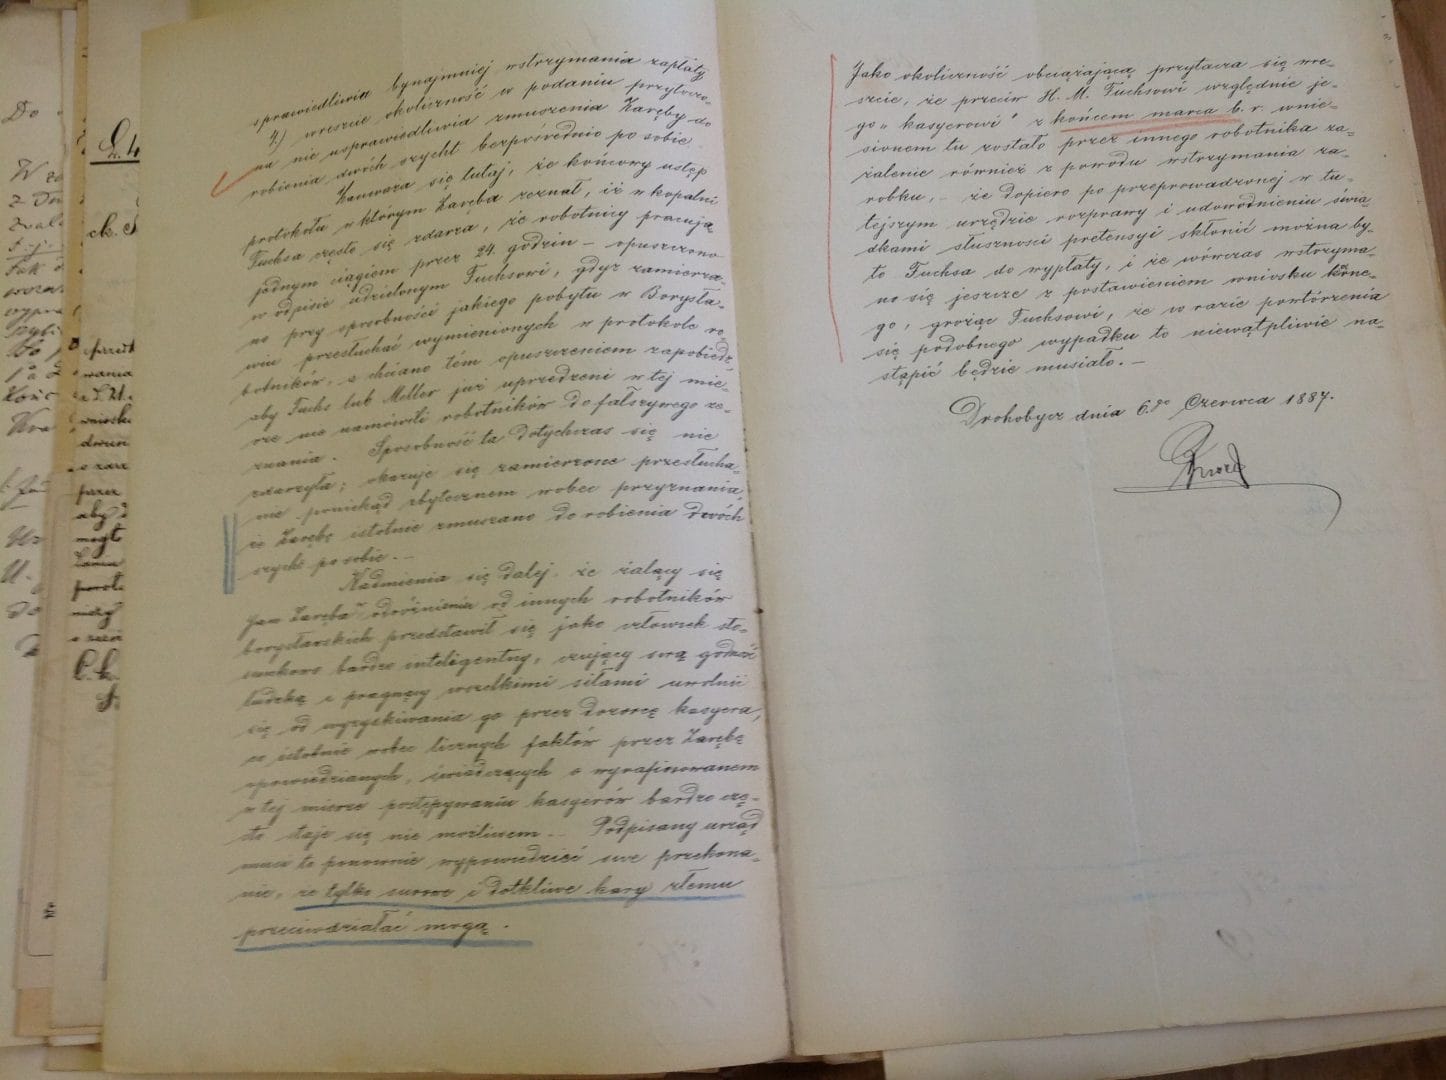 sprawiedliwia bynajmniej wstrzymania zapłaty
4.) wreszcie okoliczność w podaniu przytoczo-
na nie usprawiedliwia zmuszenia Zaręby do
robienia dwóch szycht bezpośrednio po sobie.
Zauważa się tutaj, że końcowy ustęp
protokołu w którym Zaręba zeznał, iż w kopalni
Fuchsa często się zdarza, że robotnicy pracują
jednym ciągiem przez 24 godzin – opuszczono
w odpisie udzielonym Fuchsowi, gdyż zamierza-
no przy sposobności jakiego pobytu w Borysła-
wiu przesłuchać wymienionych w protokole ro-
botników, a chciano tém opuszczeniem zapobiedz,
aby Fuchs lub Meller już uprzedzeni w tej mie-
rze nie namówili robotników do fałszywego ze-
znania. Sposobność ta dotychczas się nie
zdarzyła; okazuje się zamierzone przesłucha-
nie poniekąd zbytecznem wobec przyznania,
że Zarębę istotnie zmuszano do robienia dwóch
szycht po sobie. –
Nadmienia się dalej, że żalący się
Jan Zaręba w odróżnieniu od innych robotników
borysławskich przedstawił się jako człowiek sto-
sunkowo bardzo inteligentny, czujący swą godność
ludzką i pragnący wszelkimi siłami uwolnić
się od wyzyskiwania go przez dozorcę kasyera,
co istotnie wobec licznych faktów przez Zarębę
opowiedzianych, świadczących o wyrafinowanem
w tej mierze postępywaniu kasyerów bardzo czę-
sto staje się nie możliwem. – Podpisany urząd
musi to ponownie wypowiedzieć swe przekona-
nie, że tylko surowe i dotkliwe kary złemu
przeciwdziałać mogą.
Jako okoliczność obciążającą przytacza się wre-
szcie, że przeciw H. M. Fuchsowi względnie je-
go „kasyerowi" z końcem marca b. r. wnie-
sionem tu zostało przez innego robotnika za-
żalenie również z powodu wstrzymania za-
robku, – że dopiero po przeprowadzonej w tu-
tejszym urzędzie rozprawy i udowodnieniu świa-
dkami słuszności pretensyi skłonić można by-
ło Fuchsa do wypłaty, i że wówczas wstrzyma-
no się jeszcze z postawieniem wniosku karne-
go, grożąc Fuchsowi, że w razie powtórzenia
się podobnego wypadku to niewątpliwie na-
stąpić będzie musiało. –
Drohobycz dnia 6go Czerwca 1887.